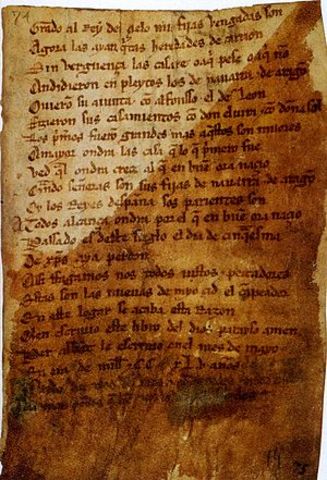 74
Grado al Rey del çielo mis fijas vengadas son
Agora las ayan q̃tas heredades de carrion
Sin verguença las casare o aq̃ pese o aq̃ nõ
Andidieron en pleytos los de nauarra ⁊ de aragõ
Ouieron su aiunta cõ alfonsso el de Leon
Fizieron sus casamientos cõ don eluira ⁊ cõ doña sol
Los p̃meros fuerõ grandes mas aq̃stos son miiores
A mayor ondra las casa q̃ lo q̃ p̃mero fue
Ved q̃l ondra creçe al q̃ en buẽ ora naçio
Quãdo señoras son sus fijas de nauarra ⁊ de aragõ
Oy los Reyes despaña sos parientes son
A todos alcança ondra por el q̃ en buẽ ora naçio
Passado es deste sieglo el dia de cinq̃esma
De xp̃s aya perdon
Assi ffagamos nos todos iustos ⁊ peccadores
Estas son las nueuas de myo çid el campeador
En este logar se acaba esta Razon
Quien escriuio este libro del dios parayso amen
Per abbat le escriuio en el mes de mayo
En era de mill ⁊ C.C xL.v. años